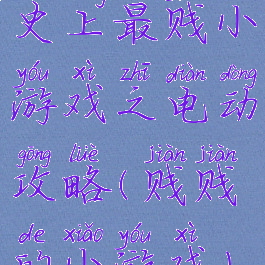 史上最贱小
yóu xì zhī diàn dòng
游戏之电动
gōng lüè jiàn jiàn
攻略(贱贱
de xiǎo yóu xì
的小游戏)